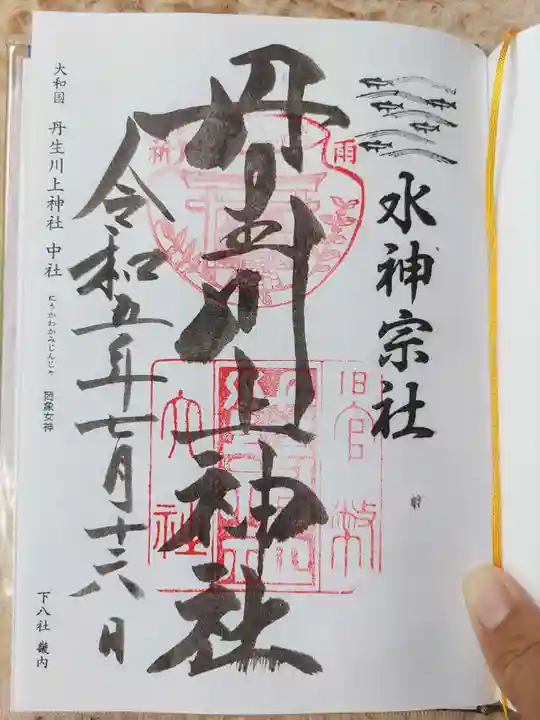 水神宗社
雨
祈
旧官幣
大社
丹生川上神社
令和五年七月十六日
大和国 丹生川上神社 中社
にうかわかみじんじゃ
罔象女神
下八社 畿内